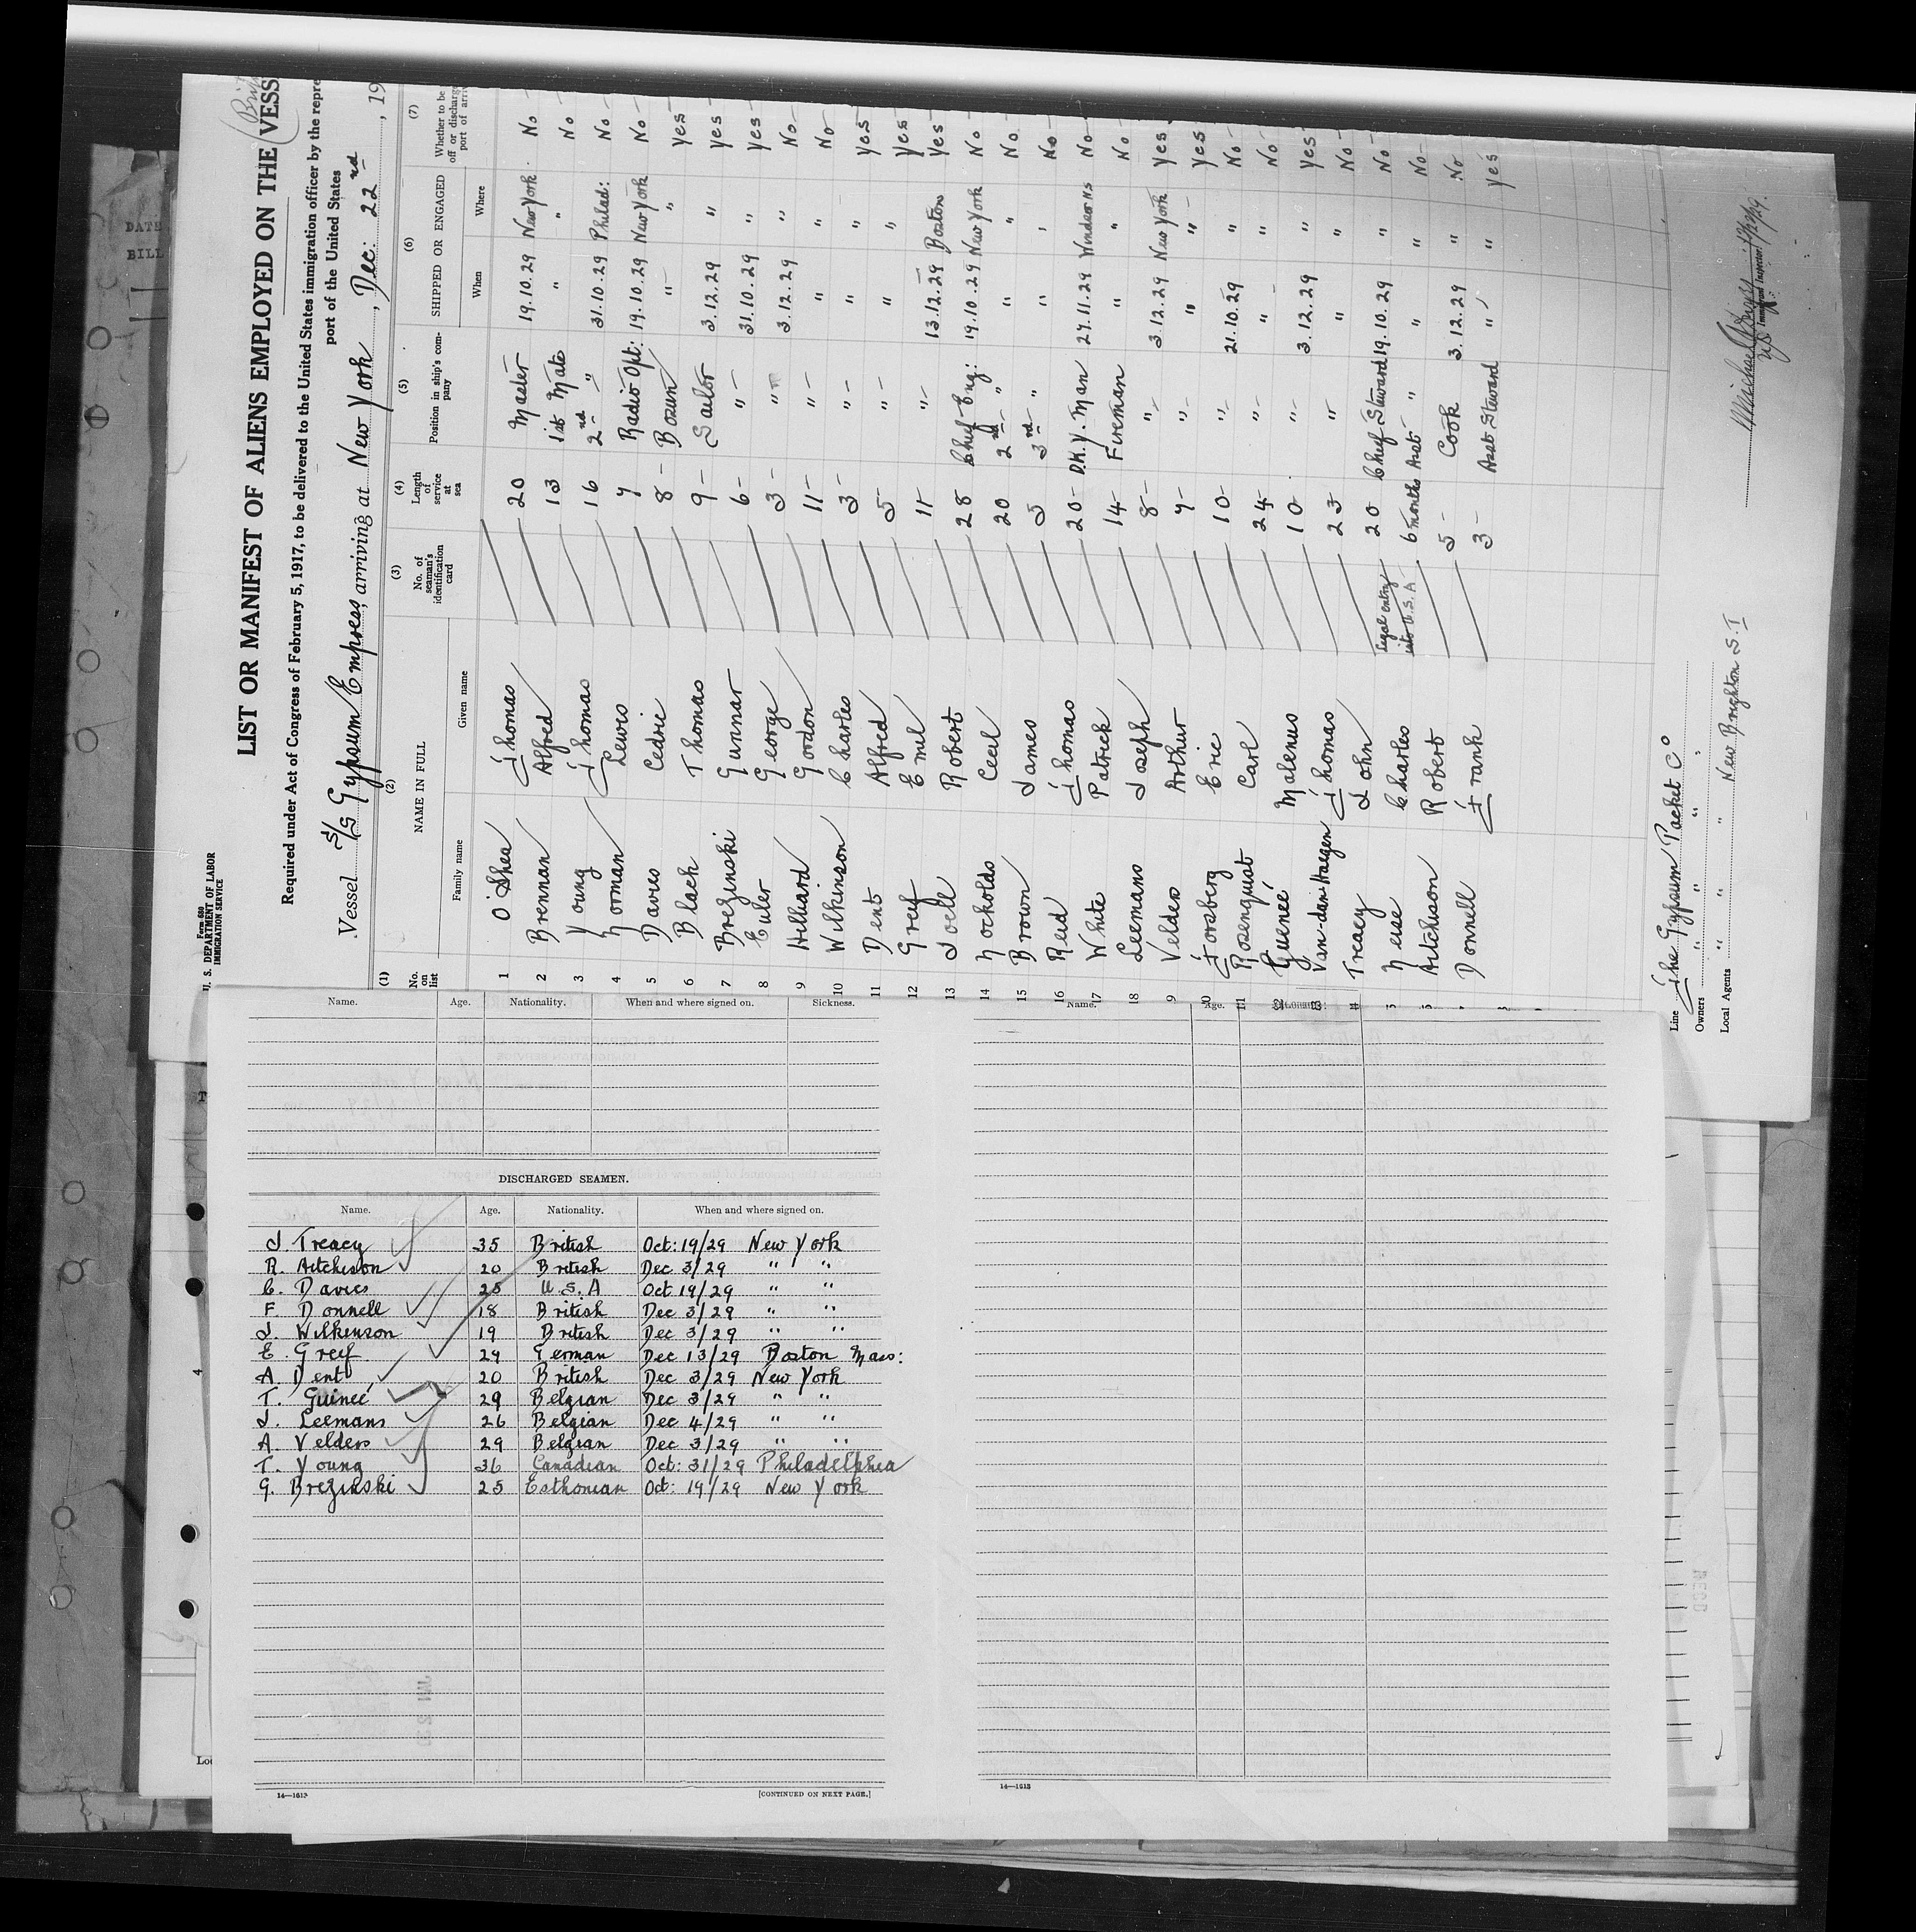 Form 680
U. S. DEPARTMENT OF LABOR
IMMIGRATION SERVICE
LIST OR MANIFEST OF ALIENS EMPLOYED ON THE VESS
Required under Act of Congress of February 5, 1917, to be delivered to the United States immigration officer by the repre
port of the United States
Vessel S/S Gypsum Empress, arriving at New York, Dec: 22nd, 19
(1) (2) (3) (4) (5) (6) (7)
No. on list NAME IN FULL No. of seaman's identification card Length of service at sea Position in ship's company SHIPPED OR ENGAGED Whether to be
off or discharg
port of arri
Family name Given name When Where
1 O'Shea Thomas 20 Master 19.10.29 New York No
2 Brennan Alfred 13 1st Mate " " No
3 Young Thomas 16 2nd " 31.10.29 Philad: No
4 Noonan Lewis 7 Radio Opt: 19.10.29 New York No
5 Davies Cedric 8 Bosun " " Yes
6 Black Thomas 9 Sailor 3.12.29 " Yes
7 Brezinski Gunnar 6 " 31.10.29 " Yes
8 Euler George 3 " 3.12.29 " No
9 Hilliard Gordon 11 " " " No
10 Wilkinson Charles 3 " " " Yes
11 Dent Alfred 5 " " " Yes
12 Greif Emil 11 " 13.12.29 Boston Yes
13 Joell Robert 28 Chief Eng: 19.10.29 New York No
14 Nockolds Cecil 20 2nd " " " No
15 Brown James 5 3rd " " " No
16 Reid Thomas 20 D.K.Y. Man 27.11.29 No
17 White Patrick 14 Fireman " " No
18 Leemans Joseph 8 " 3.12.29 New York Yes
9 Velders Arthur 7 " " " Yes
20 Forsberg Eric 10 " 21.10.29 " No
21 Rosenquist Carl 24 " " " No
22 Guenee Malenus 10 " 3.12.29 " Yes
23 Van-dan-Haegen Thomas 23 " " " No
4 Treacy John 20 Chief Steward 19.10.29 " No
5 Neise Charles legal entry into U.S.A 6 months Asst " " " No
Aitchison Robert 5 Cook 3.12.29 " No
Donnell Frank 3 Asst Steward " " Yes
Line The Gypsum Packet Co
Owners " " " "
Local Agents " " " New Brighton S.I
Immigrant Inspector. 12/22/29.
Name. Age. Nationality. When and where signed on. Sickness.
Name. Age.
DISCHARGED SEAMEN.
Name. Age. Nationality. When and where signed on.
J. Treacy 35 British Oct: 19/29 New York
R. Aitchison 20 British Dec 3/29 " "
C. Davies 25 U.S.A Oct 19/29 " "
F. Donnell 18 British Dec 3/29 " "
J. Wilkenson 19 British Dec 3/29 " "
E. Greif 29 German Dec 13/29 Boston Mass:
A. Dent 20 British Dec 3/29 New York
T. Guineé 29 Belgian Dec 3/29 " "
J. Leemans 26 Belgian Dec 4/29 " "
A. Velders 29 Belgian Dec 3/29 " "
T. Young 36 Canadian Oct: 31/29 Philadelphia
G. Brezinski 25 Esthonian Oct: 19/29 New York
[CONTINUED ON NEXT PAGE.]
14—1613
14—1613
DATE
BILL
4